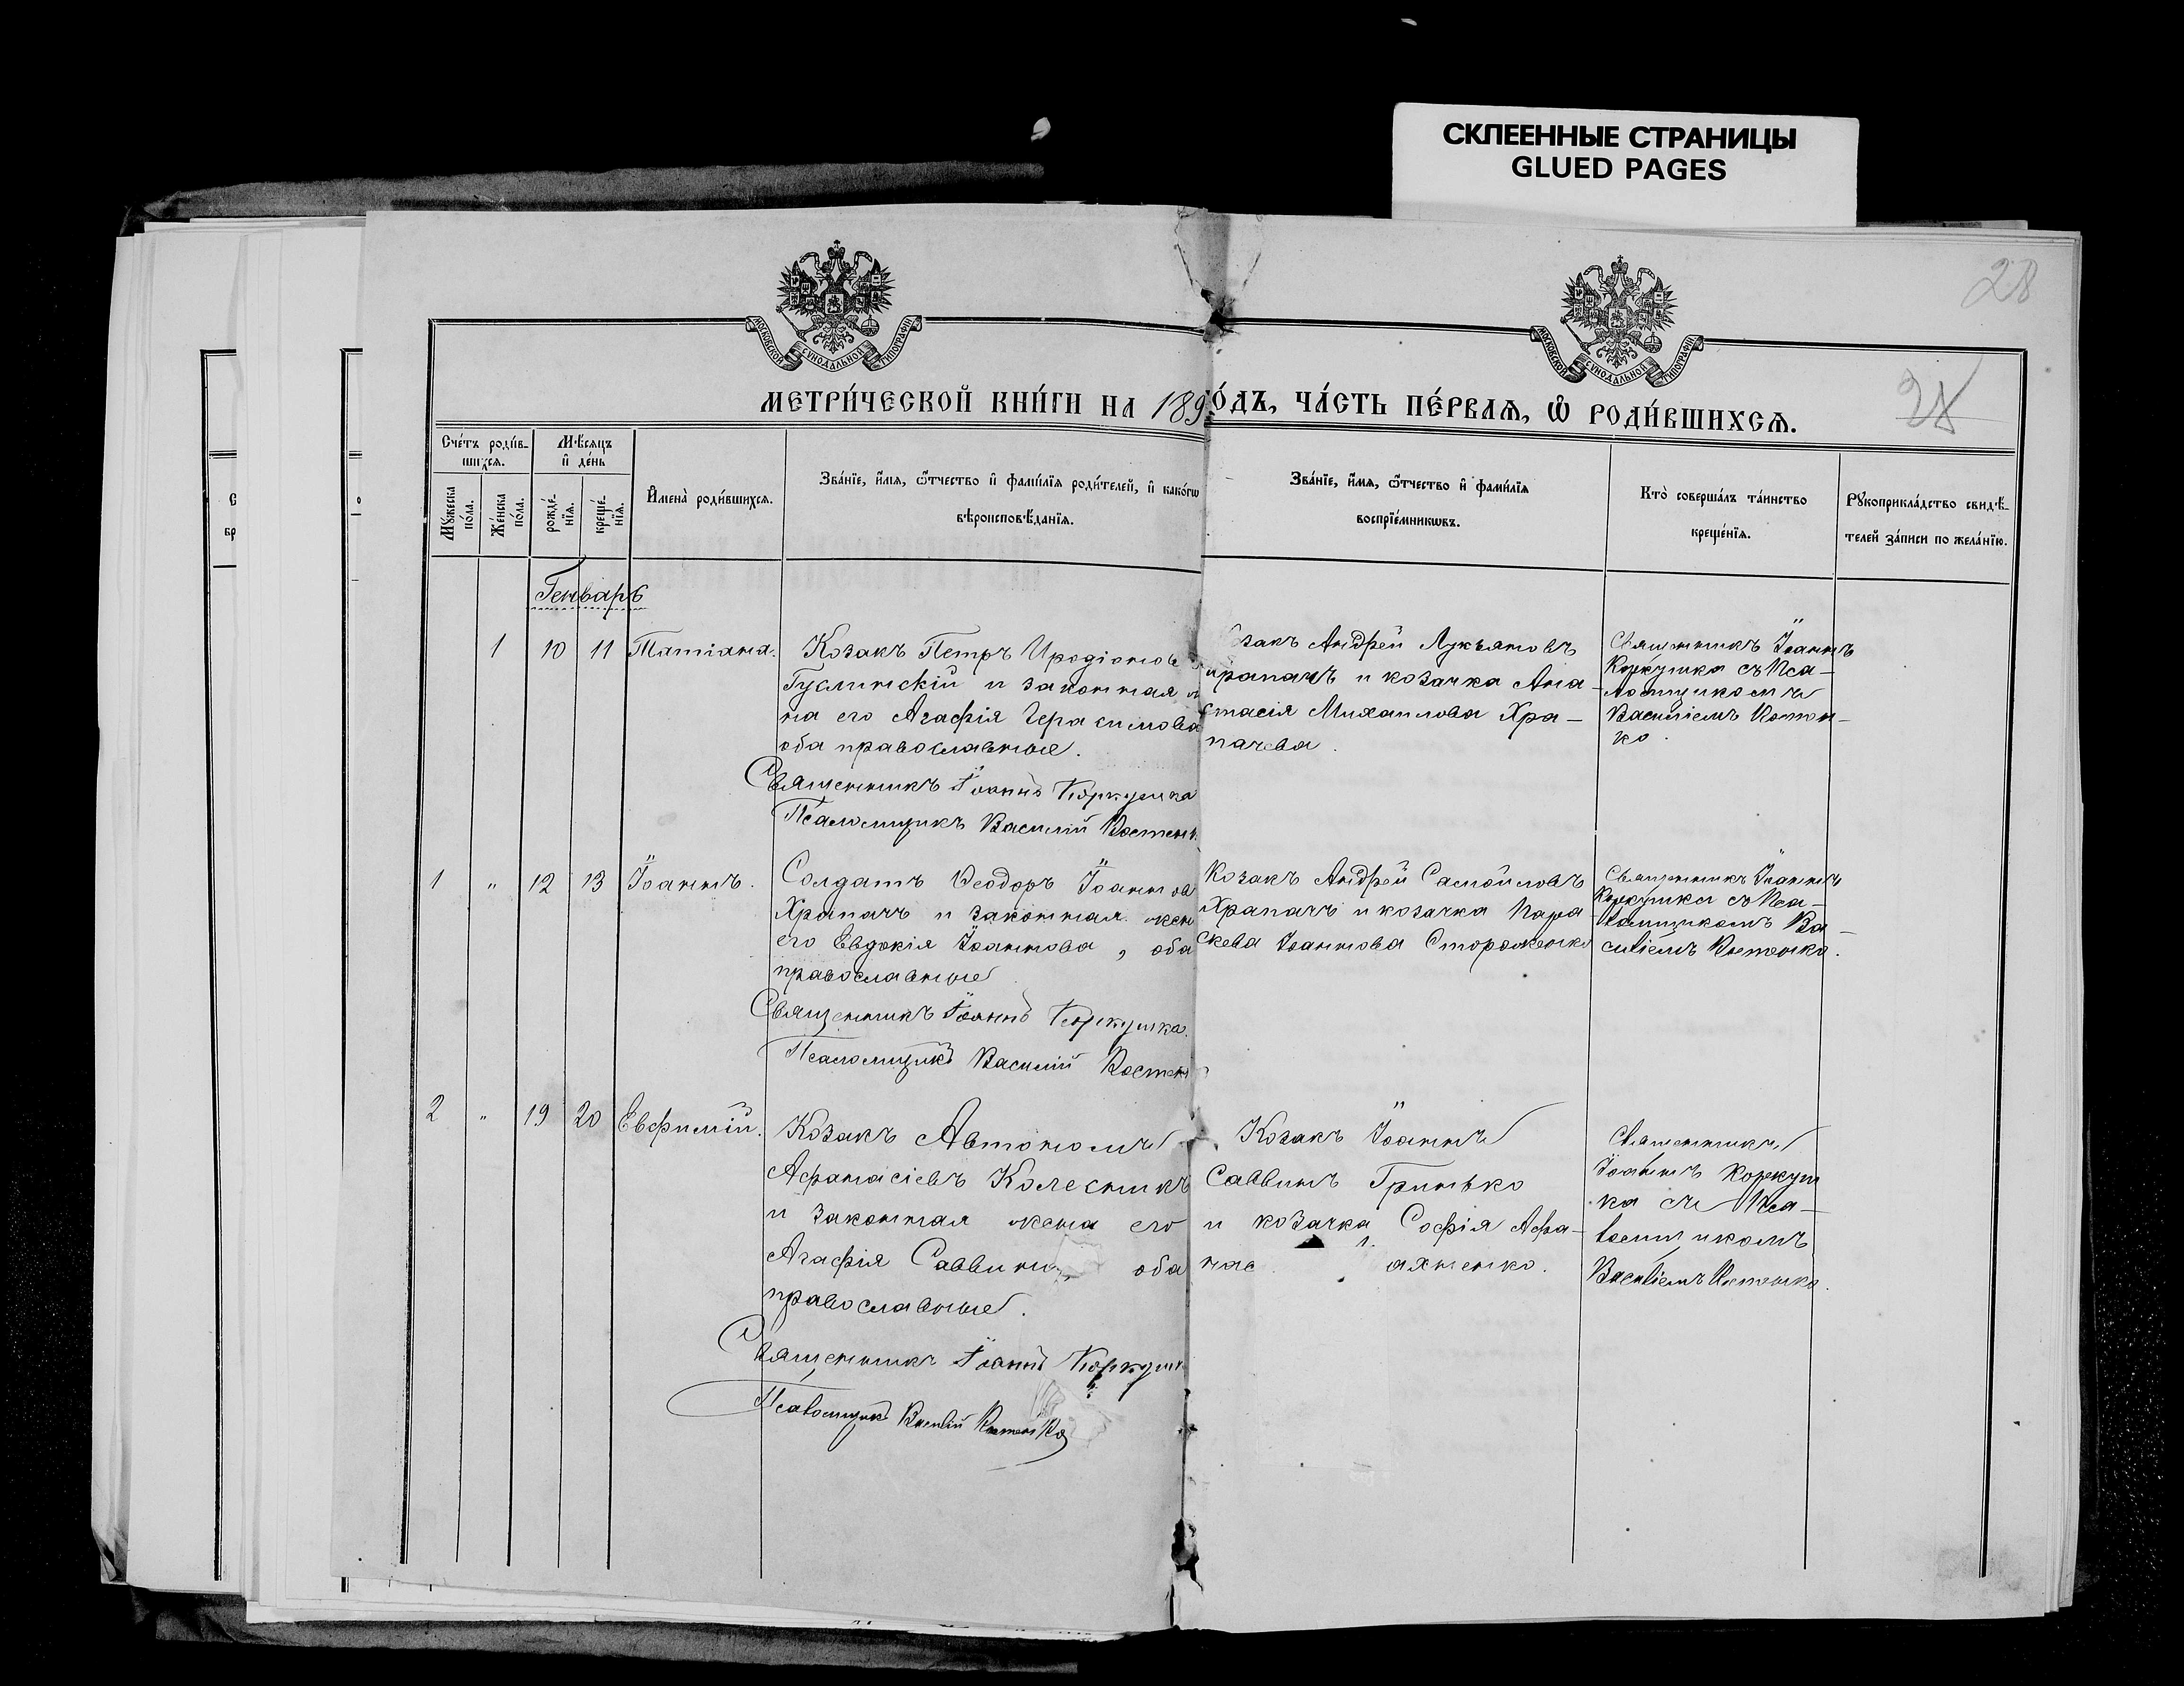 СКЛЕЕННЫЕ СТРАНИЦЫ
GLUED PAGES
28
МОСКОВСКОЙ СѴНОДАЛЬНОЙ ТИПОГРАФІИ
МОСКОВСКОЙ СѴНОДАЛЬНОЙ ТИПОГРАФІИ
28
МЕТРИ́ЧЕСКОЙ КНИ́ГИ НА 189 О́ДЪ, ЧА́СТЬ ПЕ́РВАѦ, Ѡ҆ РОДИ́ВШИХСѦ.
Сче́тъ роди́в-
шихсѧ.
Мѣ́сяцъ
и҆ де́нь
Мꙋ́жеска
по́ла.
Же́нска
по́ла.
рожде́-
нїѧ.
креще́-
нїѧ.
И҆мена̀ роди́вшихсѧ.
Зва́нїе, и҆́мѧ, ѻ҆́тчество и҆ фами́лїѧ роди́телей, и҆ како́гѡ
вѣроисповѣ́данїѧ.
Зва́нїе, и҆́мѧ, ѻ҆́тчество и҆ фами́лїѧ
воспрїе́мникѡвъ.
Кто̀ соверша́лъ та́инство
креще́нїѧ.
Рꙋкоприкла́дство свидѣ́-
телей за́писи по жела́нїю.
Генварь
1 10 11 Татіана.
Козакъ Петръ Иродіонов
Гуслинскій и законная
на его Агафія Герасимова
оба православные.
Священникъ Іоаннъ Коркушка
Псаломщикъ Василій Костен
озакъ Андрей Лукьяновъ
Храпачъ и козачка Ана-
стасія Михаилова Хра-
пачева.
Священникъ Іоаннъ
Коркушка съ Пса-
ломщикомъ
Василіемъ Костен-
ко.
1 " 12 13 Іоаннъ.
Солдатъ Ѳеодоръ Іоаннов
Храпачъ и законная жен
его Евдокія Іоаннова, оба
православные
Священникъ Іоаннъ Коркушка.
Псаломщикъ Василій Костен
Козакъ Андрей Самойловъ
Храпачъ и козачка Пара-
скева Іоаннова Стороженко
Священникъ Іоаннъ
Коркушка съ Пса-
ломщикомъ Ва-
силіемъ Костенко.
2 " 19 20 Евфимій.
Козакъ Автономъ
Афанасіевъ Колесникъ
и законная жена его
Агафія Саввина, оба
православные.
Священникъ Іоаннъ Коркушк
Псаломщикъ Василій Костенко
Козакъ Іоаннъ
Саввинъ Гринько
и козачка Софія Афа-
нас ахненко.
Священникъ
Іоаннъ Коркуш
ка съ Пса-
ломщикомъ
Василіемъ Костенко.